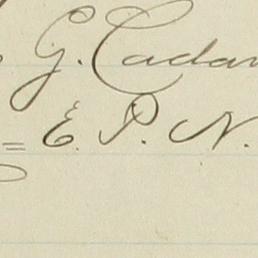 G. Cadar
= E. P. N.